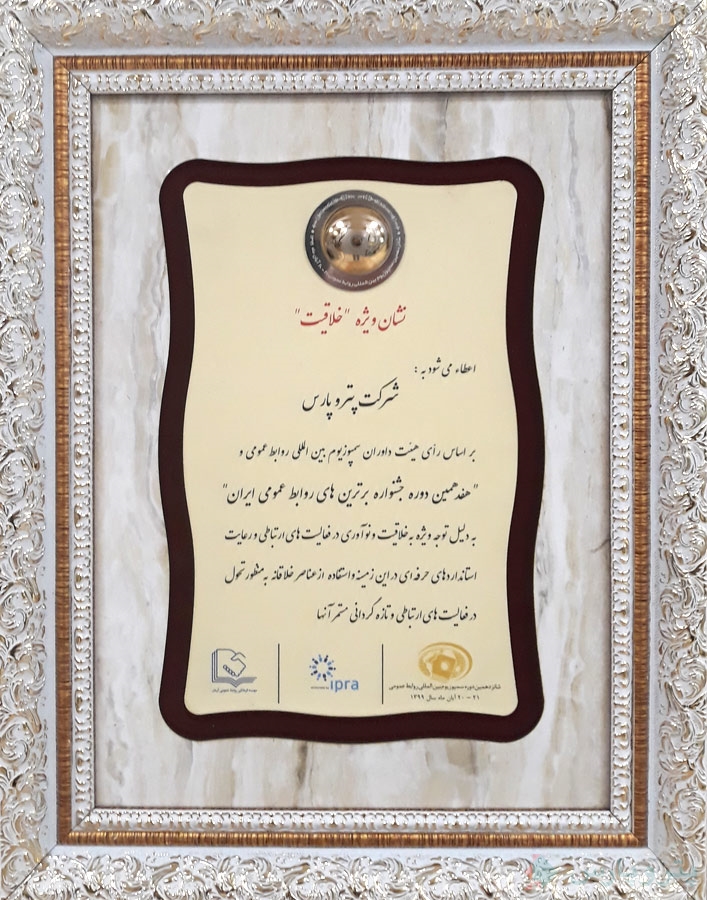 نشان ویژه "خلاقیت"
اعطاء می شود به :
شرکت پترو پارس
بر اساس رأی هیئت داوران سمپوزیوم بین المللی روابط عمومی و
"هفدهمین دوره جشنواره برترین های روابط عمومی ایران"
به دلیل توجه ویژه به خلاقیت و نوآوری در فعالیت های ارتباطی و رعایت
استانداردهای حرفه ای در این زمینه و استفاده از عناصر خلاقانه به منظور تحول
در فعالیت های ارتباطی و تازه گردانی مستمر آنها
ipra
شانزدهمین دوره سمپوزیوم بین المللی روابط عمومی
۲۱ - ۲۰ آبان ماه سال ۱۳۹۹